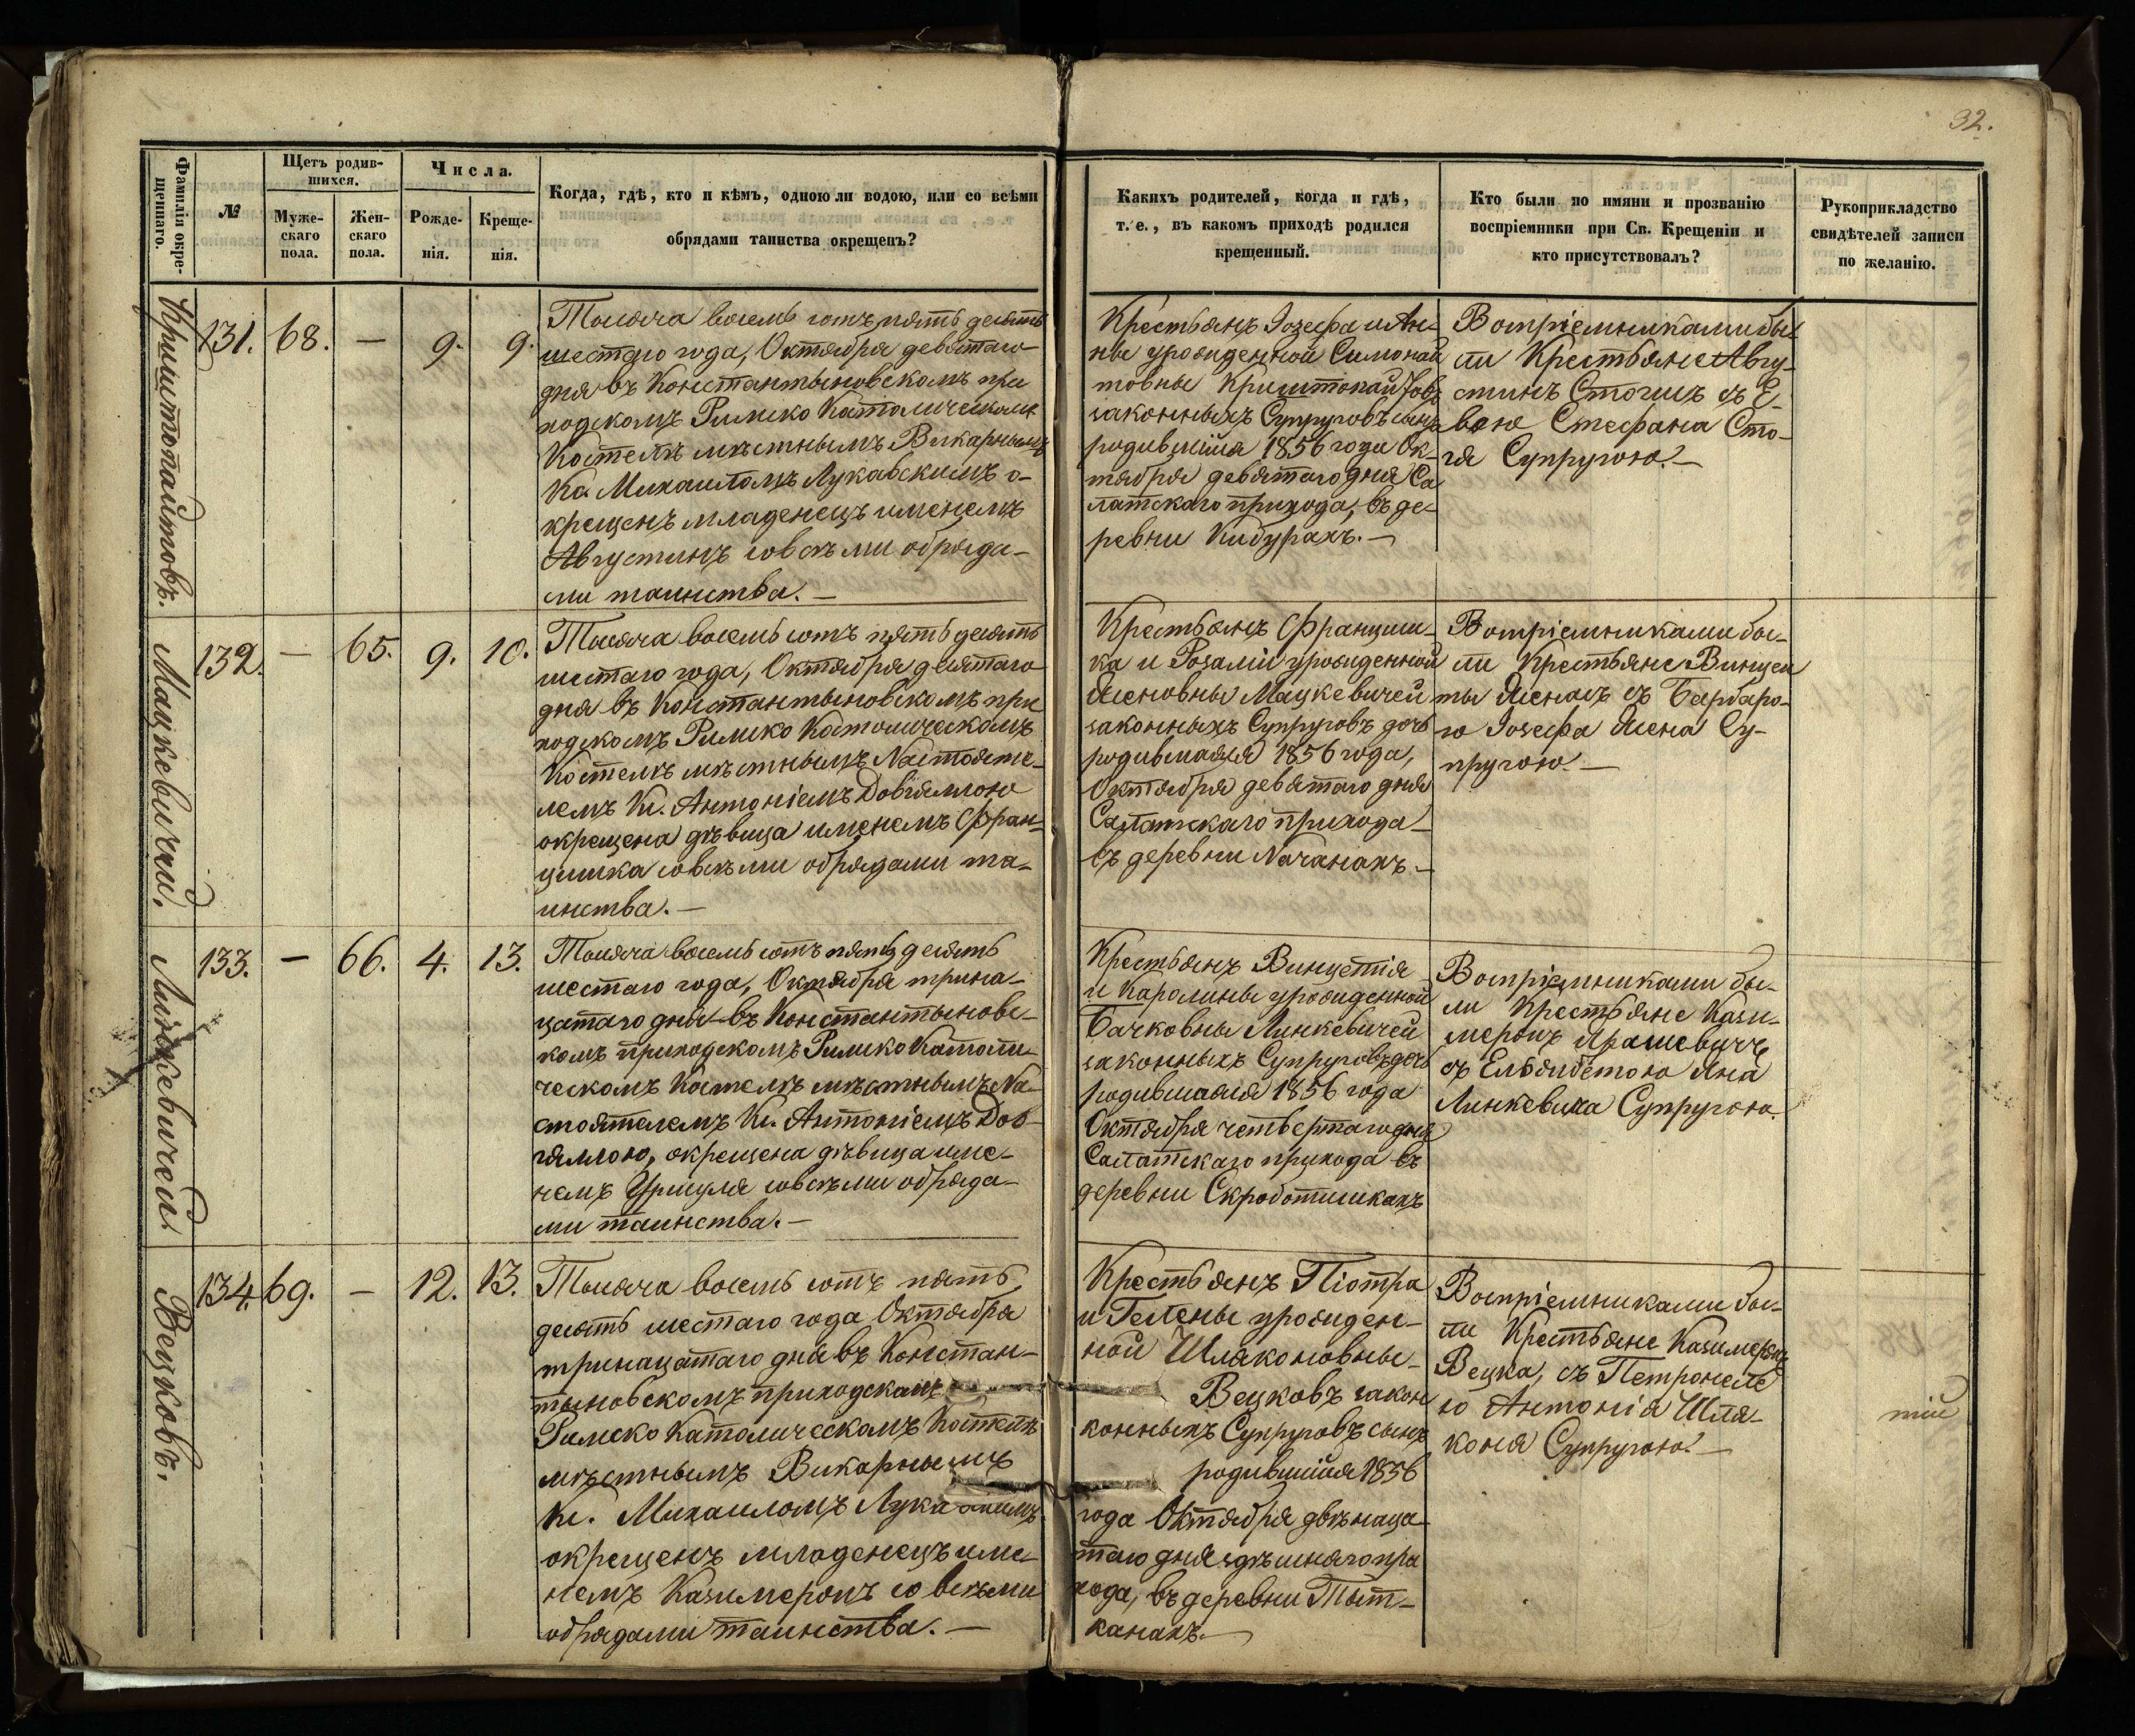 32.
Фамиліи окре-
щеннаго.
№
Щетъ родив-
шихся.
Муже-
скаго
пола.
Жен-
скаго
пола.
Числа.
Рожде-
нія.
Креще-
нія.
Когда, гдѣ, кто и кѣмъ, одною ли водою, или со всѣми
обрядами таинства окрещенъ?
Какихъ родителей, когда и гдѣ,
т. е., въ какомъ приходѣ родился
крещенный.
Кто были по имяни и прозванію
воспріемники при Св. Крещеніи и
кто присутствовалъ?
Рукоприкладство
свидѣтелей записи
по желанію.
Криштопайтовъ.
131. 68. — 9. 9.
Тысяча восемь сотъ пять десятъ
шестаго года, Октября девятаго
дня въ Константыновскомъ при
ходскомъ Римско Католическомъ
Костелѣ мѣстнымъ Викарнымъ
Кс. Михаиломъ Лукавскимъ о-
крещенъ младенецъ именемъ
Августинъ совсѣми обряда-
ми таинства. —
Крестьянъ Іозефа и Ан-
ны урожденной Симонай
товны Криштопайтовъ
законныхъ Супруговъ сынъ
родившійся 1856 года Ок-
тября девятаго дня Са
латскаго прихода, въ де-
ревни Кибурахъ. —
Воспріемниками бы
ли Крестьяне Авгу-
стинъ Стогисъ съ Е-
вою Стефана Сто-
гя Супругою. —
Мацкевичъи.
132. — 65. 9. 10.
Тысяча восемь сотъ пять десятъ
шестаго года, Октября десятаго
дня въ Константыновскомъ при
ходскомъ Римско Католическомъ
Костелѣ мѣстнымъ Настояте-
лемъ Кс. Антоніемъ Довгяллою
окрещена дѣвица именемъ Фран-
цишка совсѣми обрядами та-
инства. —
Крестьянъ Францишка
ка и Розаліи урожденной
Ясеновны Мацкевичей
законныхъ Супруговъ дочь
родившаяся 1856 года,
Октября девятаго дня
Салатскаго прихода
въ деревни Начанахъ. —
Воспріемниками бы-
ли Крестьяне Винцен
ты Ясенасъ съ Барбаро-
ю Іозефа Ясена Су-
пругою. —
Линкевичей.
133. — 66. 4. 13.
Тысяча восемь сотъ пять десятъ
шестаго года, Октября трина-
цатаго дня въ Константыновс-
комъ приходскомъ Римско Католи-
ческомъ Костелѣ мѣстнымъ На-
стоятелемъ Кс. Антоніемъ Дов-
гяллою, окрещена дѣвица име-
немъ Уршуля совсѣми обряда-
ми таинства. —
Крестьянъ Винцентія
и Каролины урожденной
Бачковны Линкевичей
законныхъ Супруговъ дочь
родившаяся 1856 года
Октября четвертаго дня
Салатскаго прихода въ
деревни Скроботишкахъ
Воспріемниками бы-
ли Крестьяне Кази-
меръ Ярашевичъ
съ Ельжбетою Яна
Линкевича Супругою.
Вецковъ.
134. 69. — 12. 13.
Тысяча восемь сотъ пять
десятъ шестаго года Октября
тринацатаго дня въ Констан-
тыновскомъ приходскомъ
Римско Католическомъ Костелѣ
мѣстнымъ Викарнымъ
Кс. Михаиломъ Лукавскимъ
окрещенъ младенецъ име-
немъ Казимеръ со всѣми
обрядами таинства. —
Крестьянъ Піотра
и Гелены урожден-
ной Шляконовны
Вецковъ закон
конныхъ Супруговъ сынъ
родившійся 1856
года Октября двѣнаца
таго дня здѣшняго при
хода, въ деревни Тыт-
канахъ. —
Воспріемниками бы-
ли Крестьяне Казимеръ
Вецка, съ Петронелѣ
ю Антонія Шля-
коня Супругою. —